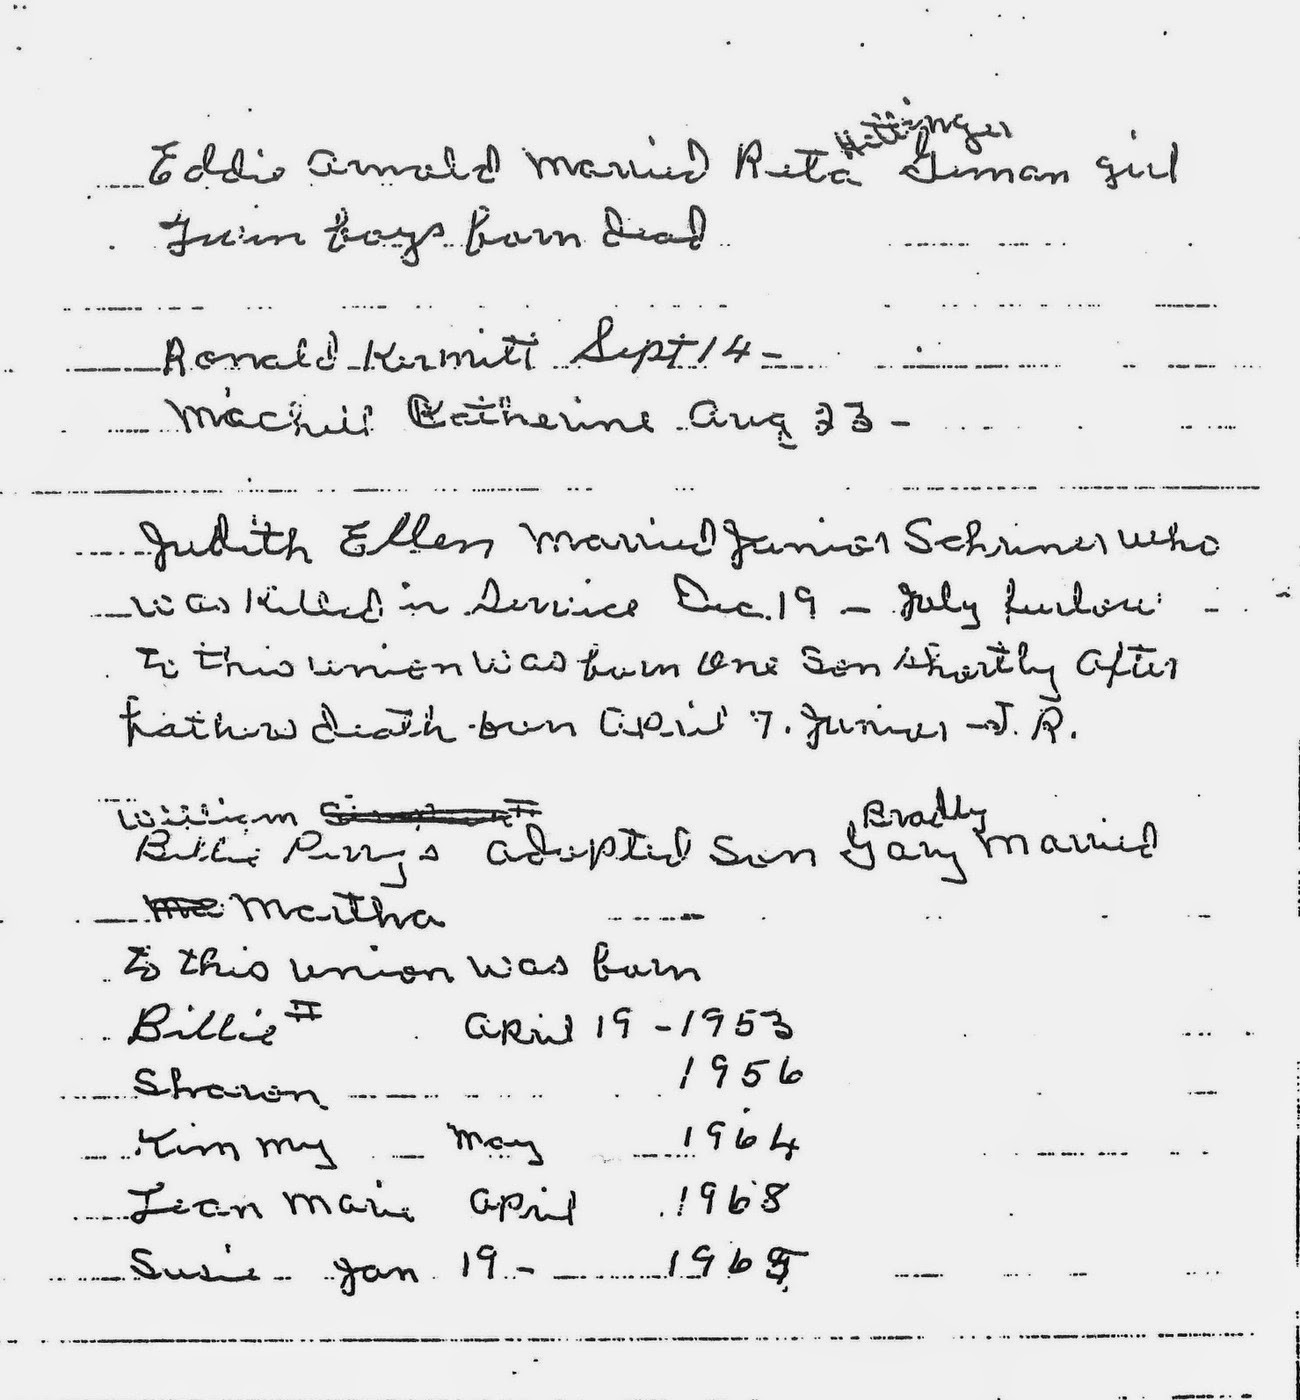 Hittinger
Eddie Arnold Married Reta German girl
Twin boys born dead
Ronald Kermitt Sept 14 -
Machell Katherine Aug 23 -
Judith Ellen Married Junior Schriner who
was killed in Service Dec. 19 - July furlow
to this union was born one son shortly after
fathers death born April 7. Junior - J. R.
William
Bradly
Billie Perry's adopted son Gary Married
Martha
to this union was born
Billie II April 19 - 1953
Sharon 1956
Kimmy May 1964
Lean Marie April 1968
Susie Jan 19 - 196